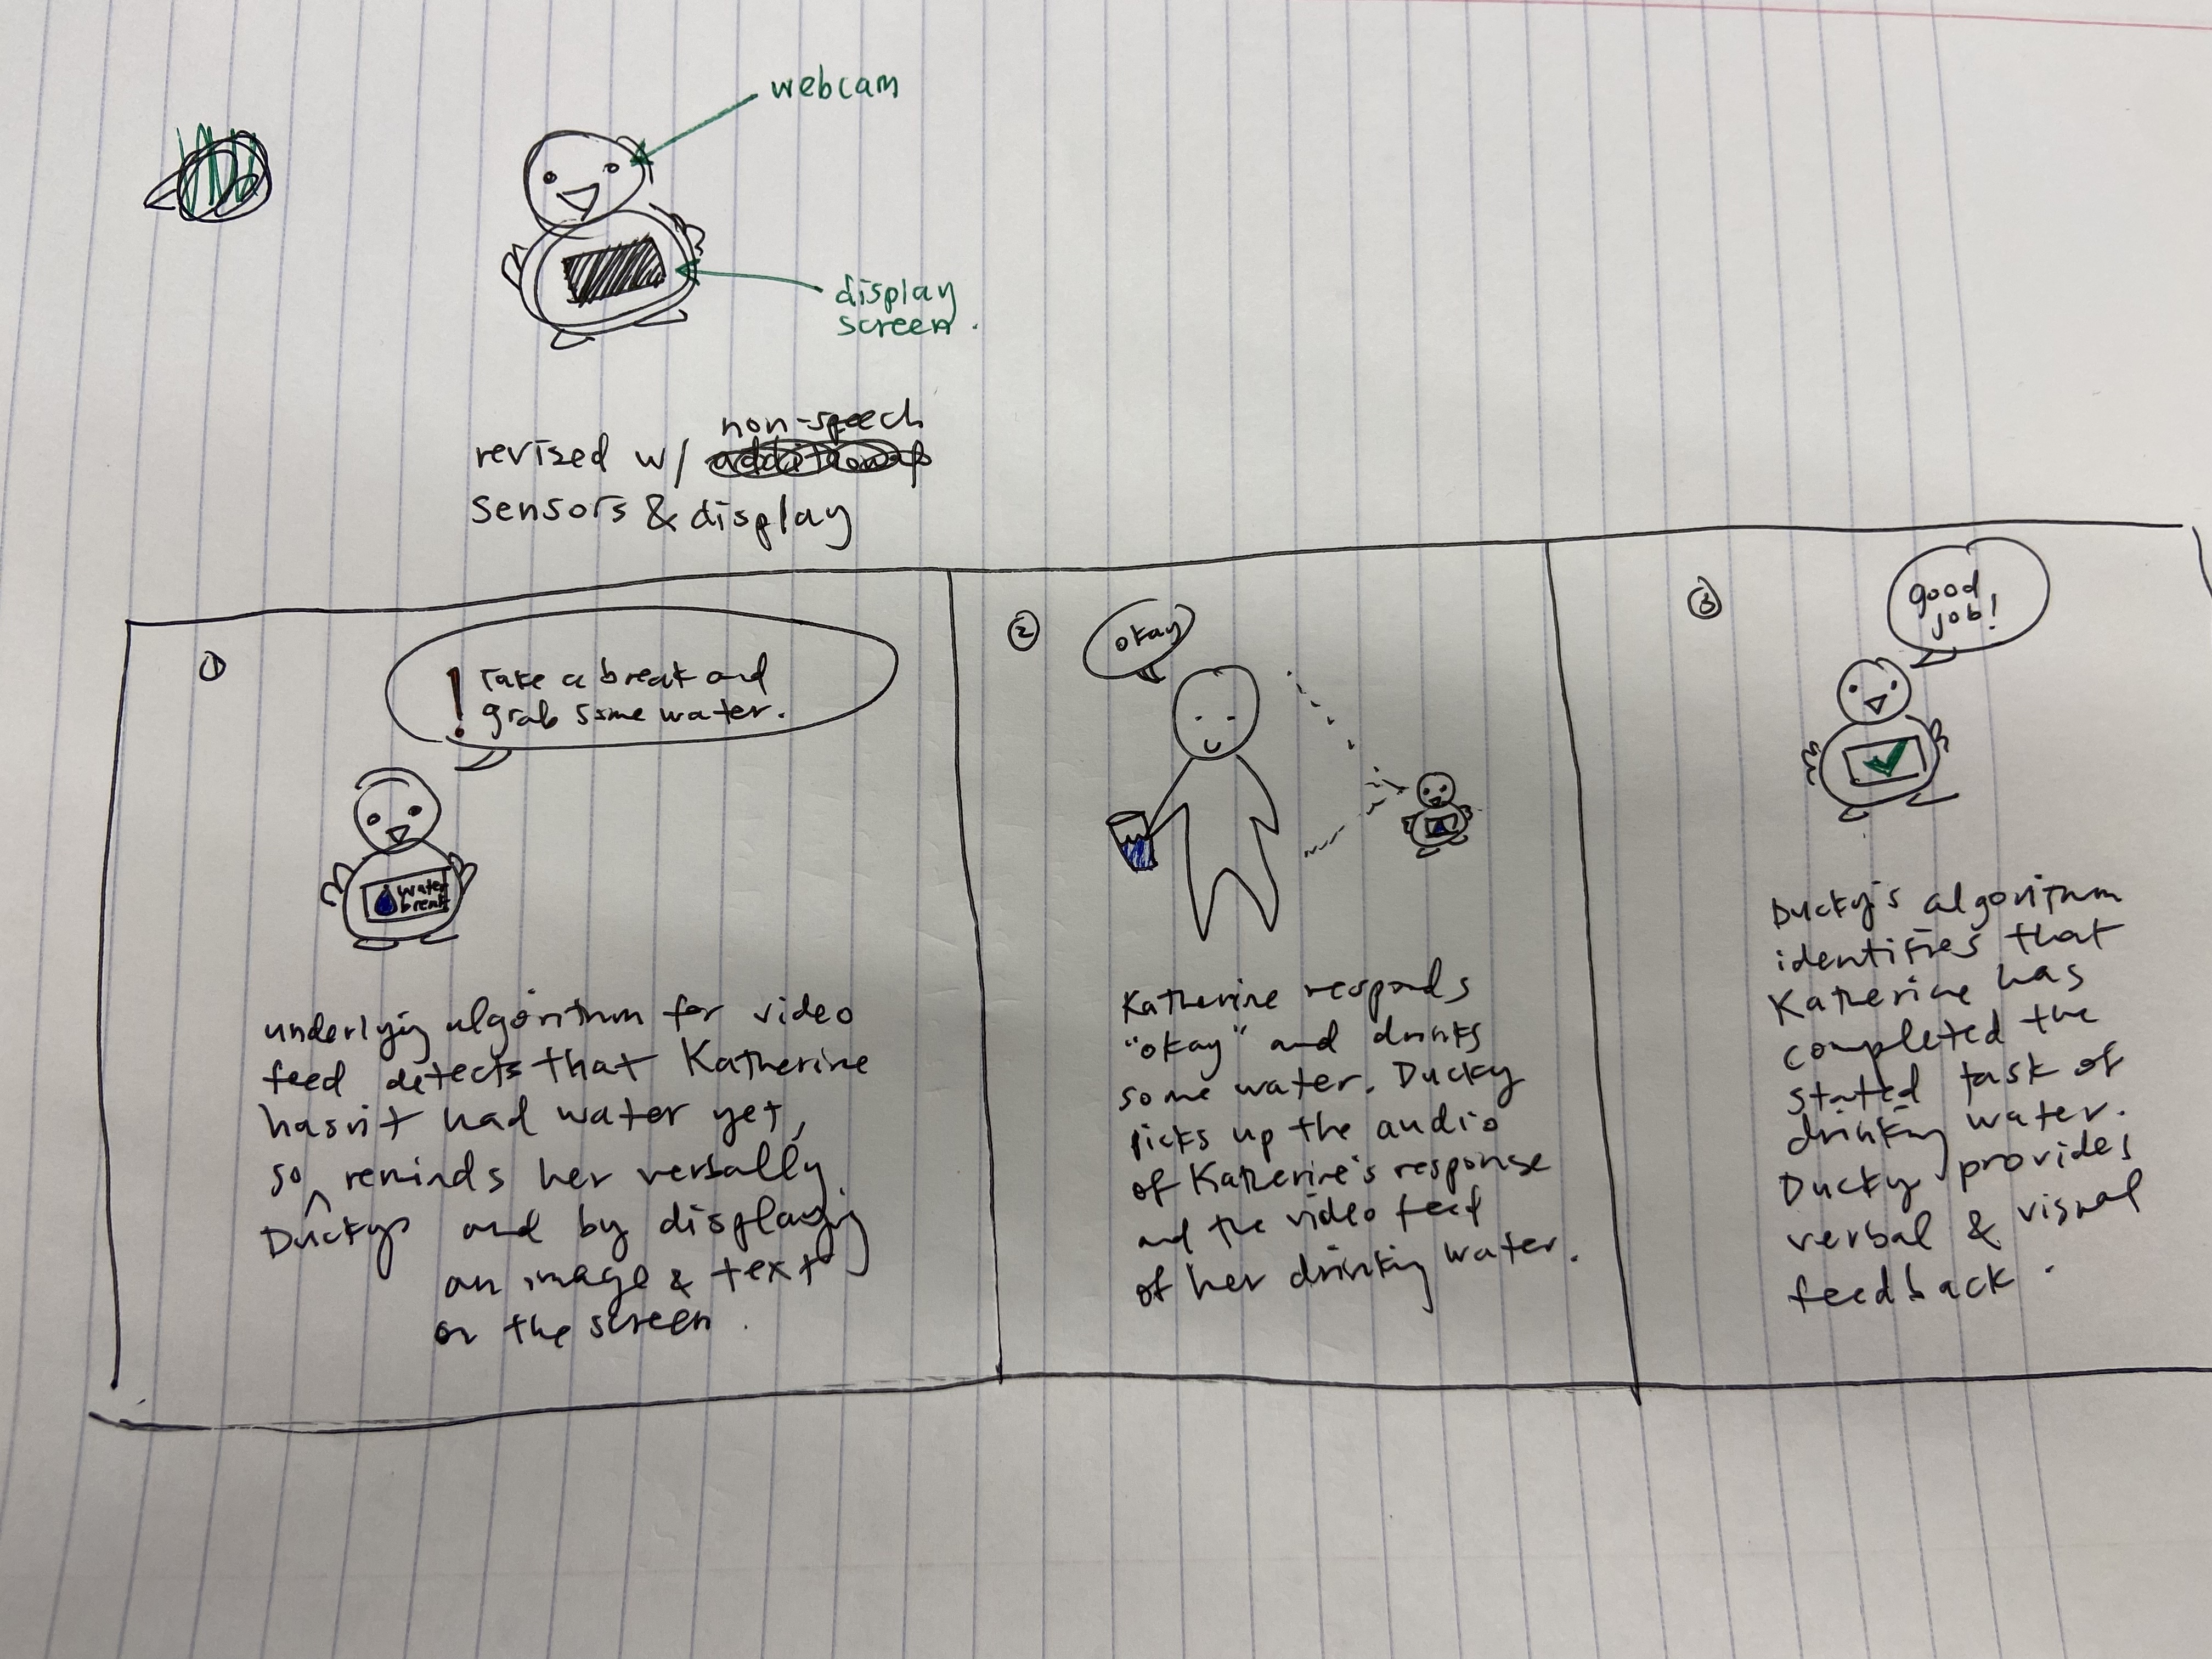 webcam
display
screen.
non-speech
revised w/
sensors & display
①
! Take a break and
grab some water.
water
break
underlying algorithm for video
feed detects that Katherine
hasn't had water yet,
so ^ reminds her verbally
Ducky and by displaying
an image & text
on the screen.
②
okay
Katherine responds
"okay" and drinks
some water. Ducky
picks up the audio
of Katherine's response
and the video feed
of her drinking water.
③
good
job!
Ducky's algorithm
identifies that
Katherine has
completed the
stated task of
drinking water.
Ducky provides
verbal & visual
feedback.